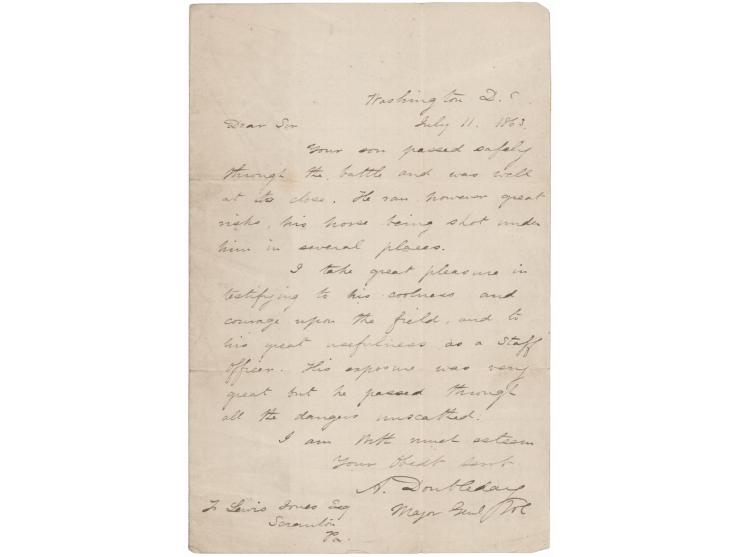 Washington D. C
Dear Sir July 11. 1863.
Your son passed safely
through the battle and was well
at its close. He ran however great
risks, his horse being shot under
him in several places.
I take great pleasure in
testifying to his coolness and
courage upon the field, and to
his great usefulness as a Staff
Officer. His exposure was very
great but he passed through
all the dangers unscathed.
I am With much esteem
Your Obedt servt
A. Doubleday
Major Genl Vol
To Lewis Jones Esq
Scranton
Pa.